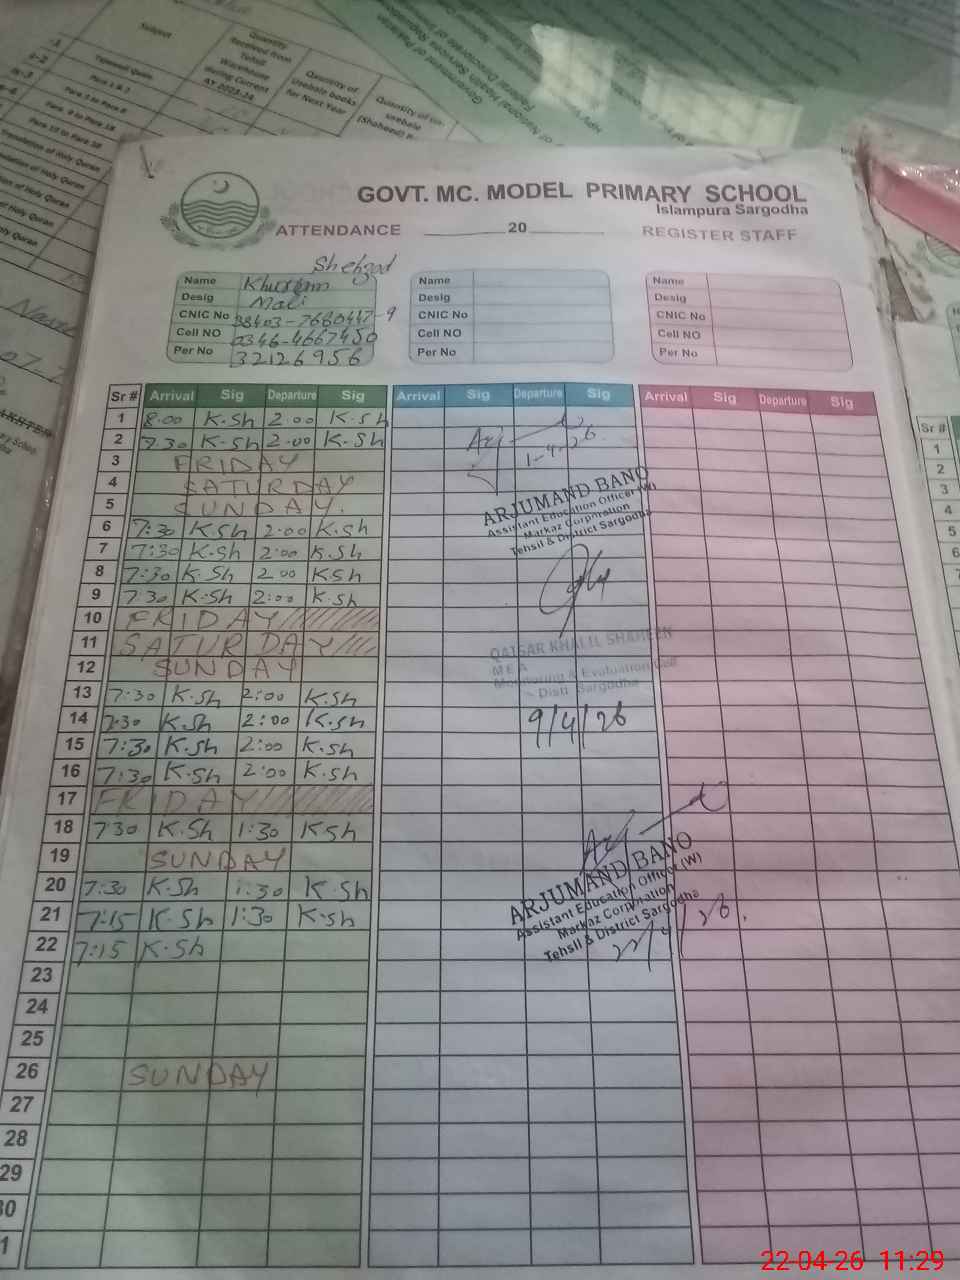 Subject
Quantity
Received from
Tehsil
Warehouse
during Current
AY 2023-24
Quantity of
useable books
for Next Year
Quantity of un-
useable
(Shaheed)
Para 1 & 2
Para 3 to 8
Para 9 to 18
Para 19 to 30
Translation of Holy Quran
GOVT. MC. MODEL PRIMARY SCHOOL
Islampura Sargodha
ATTENDANCE 20 REGISTER STAFF
Shehzad
Name Khurram
Desig Mali
CNIC No 38403-7660447-9
Cell NO 0346-4667450
Per No 32126956
Name
Desig
CNIC No
Cell NO
Per No
Name
Desig
CNIC No
Cell NO
Per No
Sr # Arrival Sig Departure Sig Arrival Sig Departure Sig Arrival Sig Departure Sig
1 8:00 K.Sh 2:00 K.Sh
2 7:30 K.Sh 2:00 K.Sh
3 FRIDAY
4 SATURDAY
5 SUNDAY.
6 7:30 K.Sh 2:00 K.Sh
7 7:30 K.Sh 2:00 K.Sh
8 7:30 K.Sh 2:00 K.Sh
9 7:30 K.Sh 2:00 K.Sh
10 FRIDAY
11 SATURDAY
12 SUNDAY
13 7:30 K.Sh 2:00 K.Sh
14 7:30 K.Sh 2:00 K.Sh
15 7:30 K.Sh 2:00 K.Sh
16 7:30 K.Sh 2:00 K.Sh
17 FRIDAY
18 7:30 K.Sh 1:30 K.Sh
19 SUNDAY
20 7:30 K.Sh 1:30 K.Sh
21 7:15 K.Sh 1:30 K.Sh
22 7:15 K.Sh
23
24
25
26 SUNDAY
27
28
29
30
1-4-26.
ARJUMAND BANO
Assistant Education Officer (W)
Markaz Corporation
Tehsil & District Sargodha
QAISAR KHALIL SHAHEEN
MEA
Monitoring & Evaluation Cell
Distt. Sargodha
9/4/26
ARJUMAND BANO
Assistant Education Officer (W)
Markaz Corporation
Tehsil & District Sargodha
Sr #
1
2
3
4
5
6
7
22-04-26 11:29